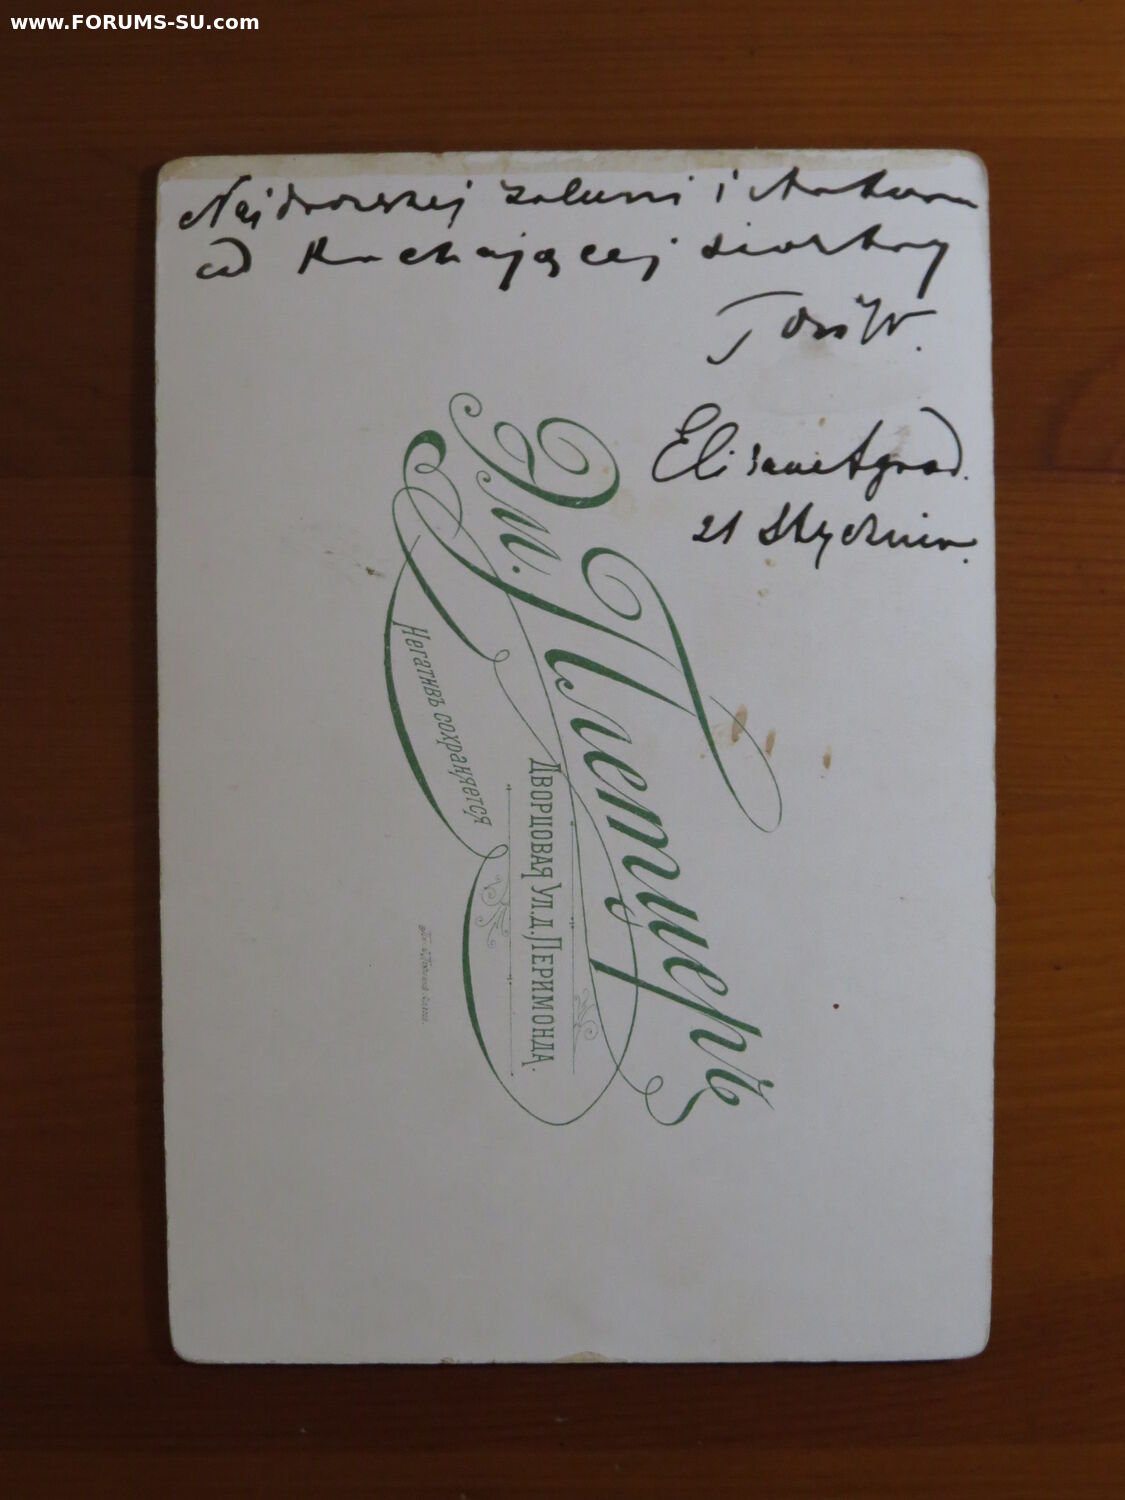 www.FORUMS-SU.com
Najdroższej i
od Kochającej siostry
Elisavetgrad.
21 Stycznia.
Эм. Плетцеръ
Дворцовая ул. д. Перимонда.
Негативъ сохраняется